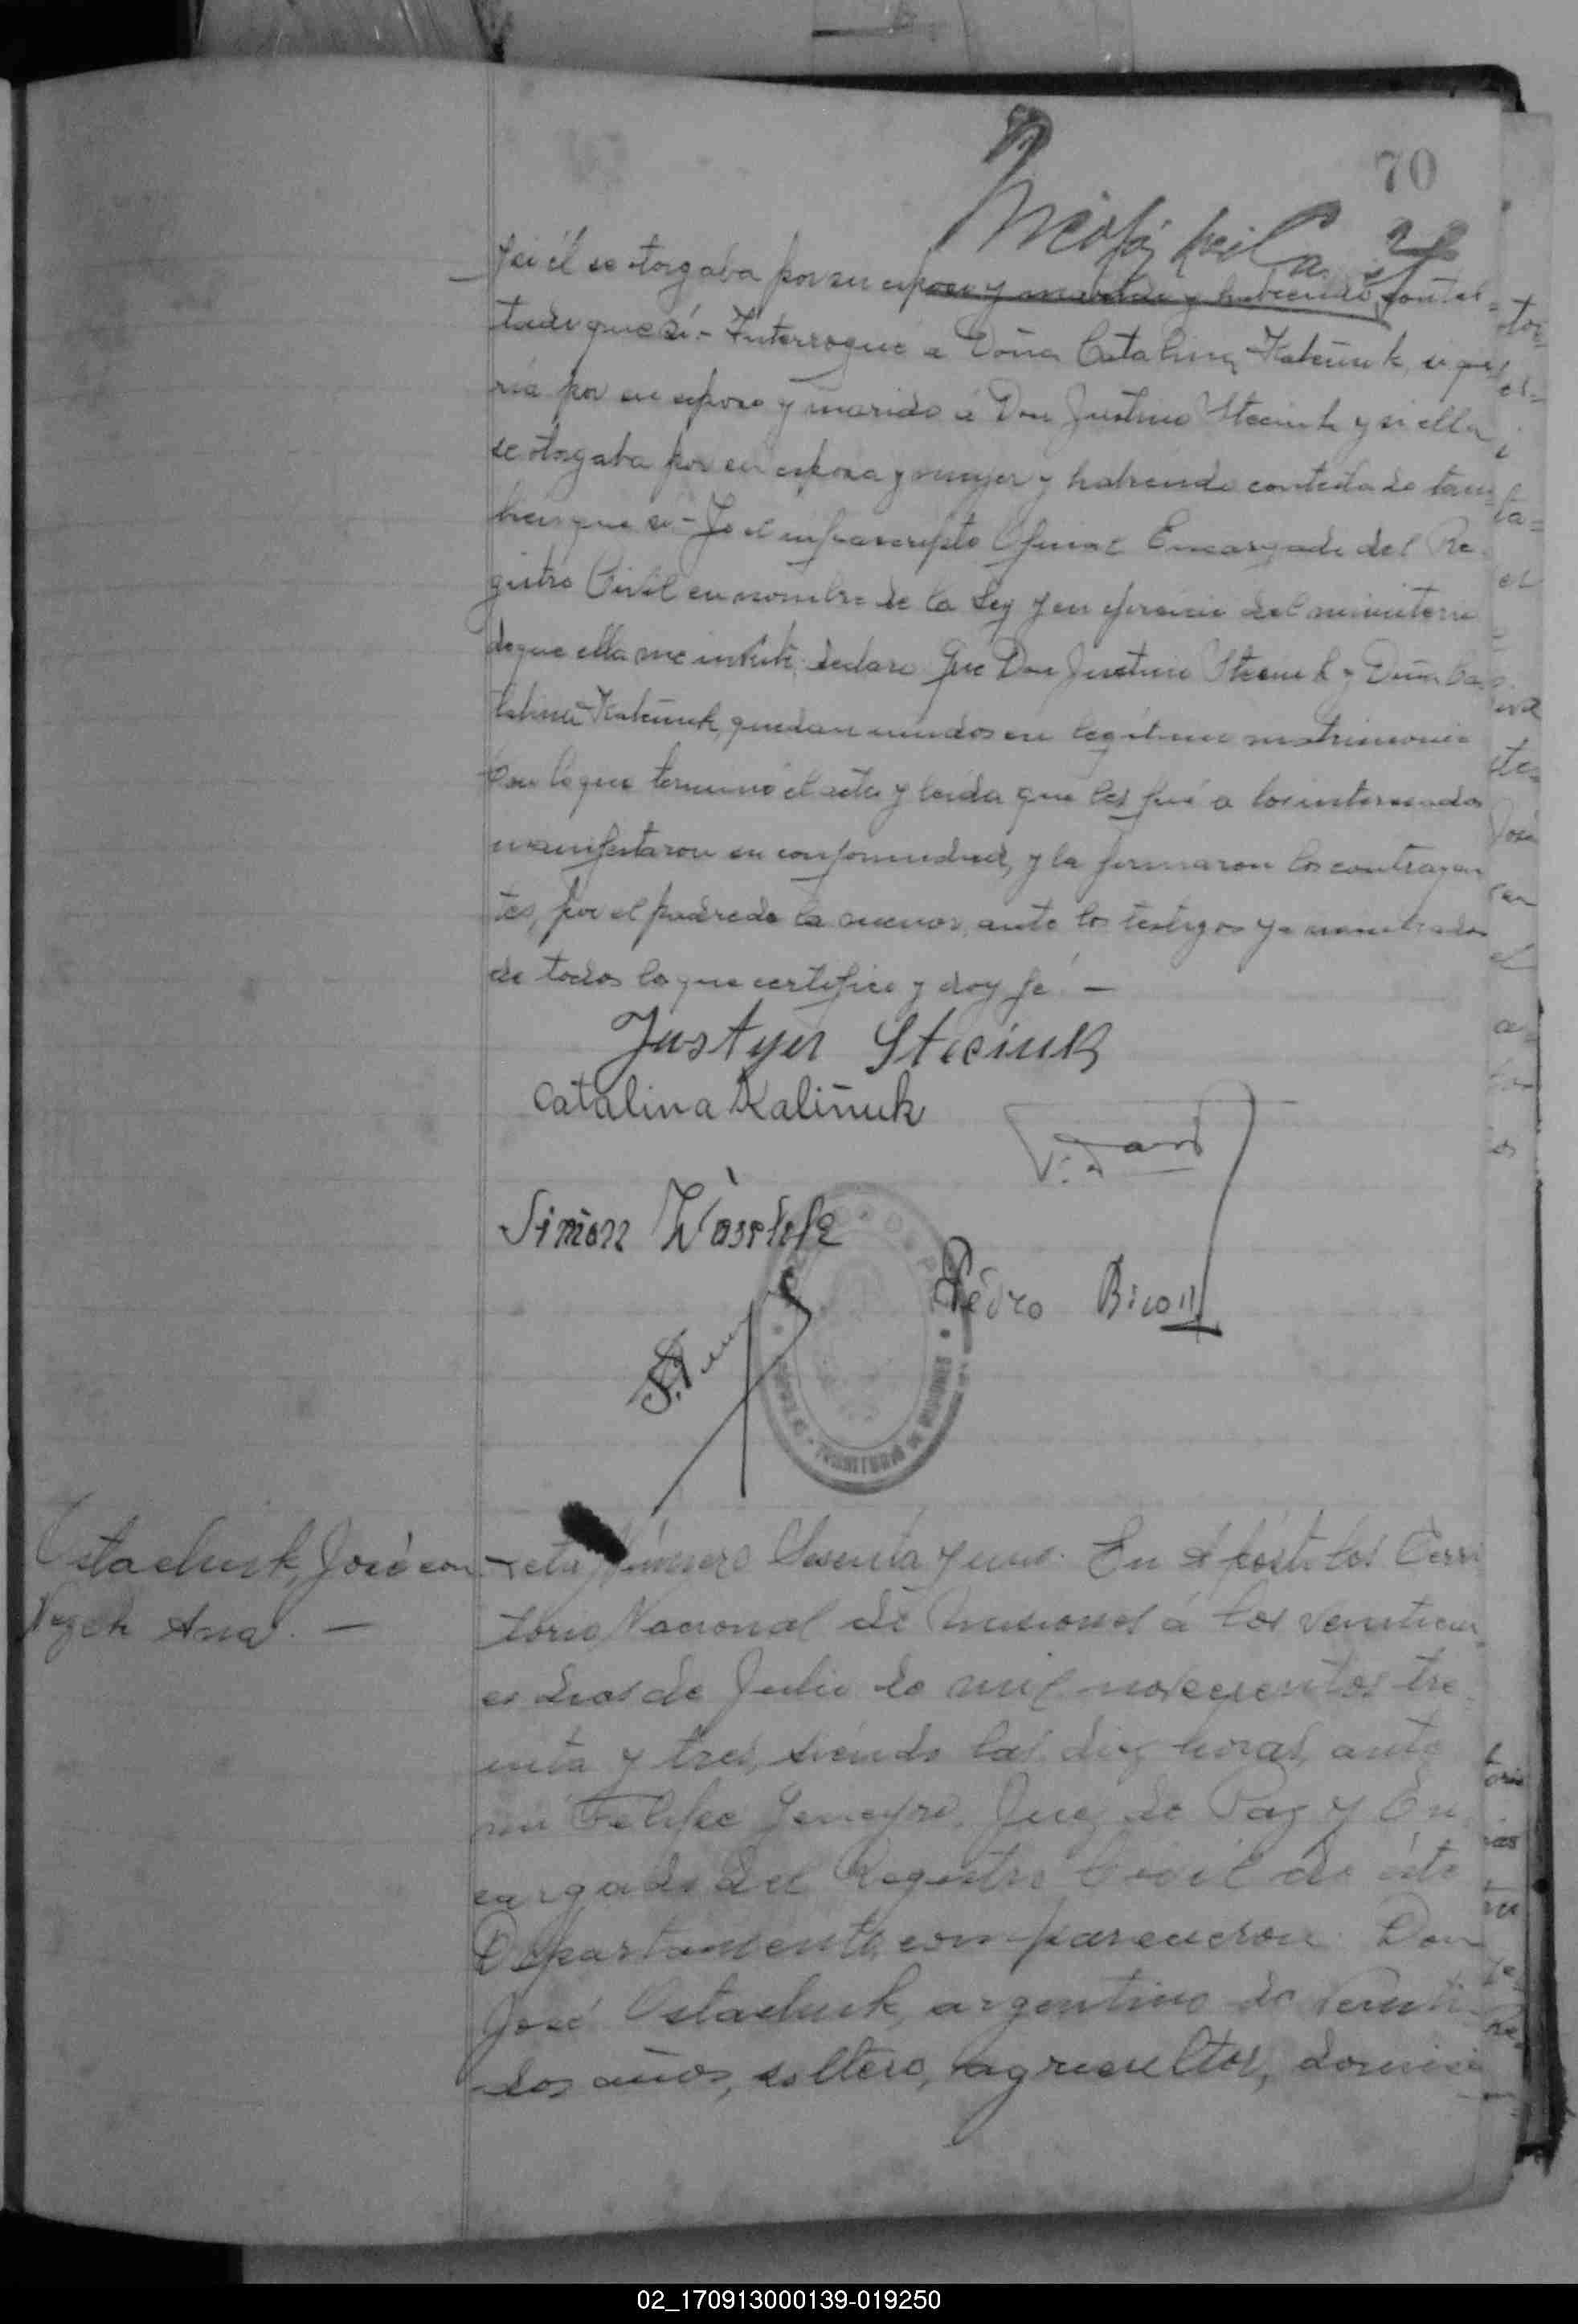 70
y si él se otorgaba por su esposo y marido y habiendo contes=
tado que sí.- Interrogué a Doña Catalina Kaliñuk, si que
ría por su esposo y marido á Don Justino Steciuk y si ella
se otorgaba por su esposa y mujer y habiendo contestado tam
bien que si - Yo el infrascripto Oficial Encargado del Re
gistro Civil en nombre de la Ley y en ejercicio del ministerio
de que ella me inviste, declaro que Don Justino Steciuk y Doña Ca
talina Kaliñuk, quedan unidos en legítimo matrimonio
Con lo que terminó el acta y leida que les fué a los interesados
manifestaron su conformidad, y la firmaron los contrayen
tes, por el padre de la menor, ante los testigos ya nombrados
de todos lo que certifico y doy fé. -
Justyn Steciuk
Catalina Kaliñuk
Simon
Pedro
TERRITORIO DE MISIONES
Ostachuk, José con
Ana. -
Acta Número Sesenta y uno. En Apóstoles Terri
torio Nacional de Misiones á los
dias de Julio de mil novecientos tre
inta y tres, siendo las diez horas, ante
mi Felipe Juez de Paz y En
cargado del Registro Civil de éste
Departamento, comparecieron Don
José Ostachuk, argentino de veinti
dos años, soltero, agricultor, domici
02_170913000139-019250